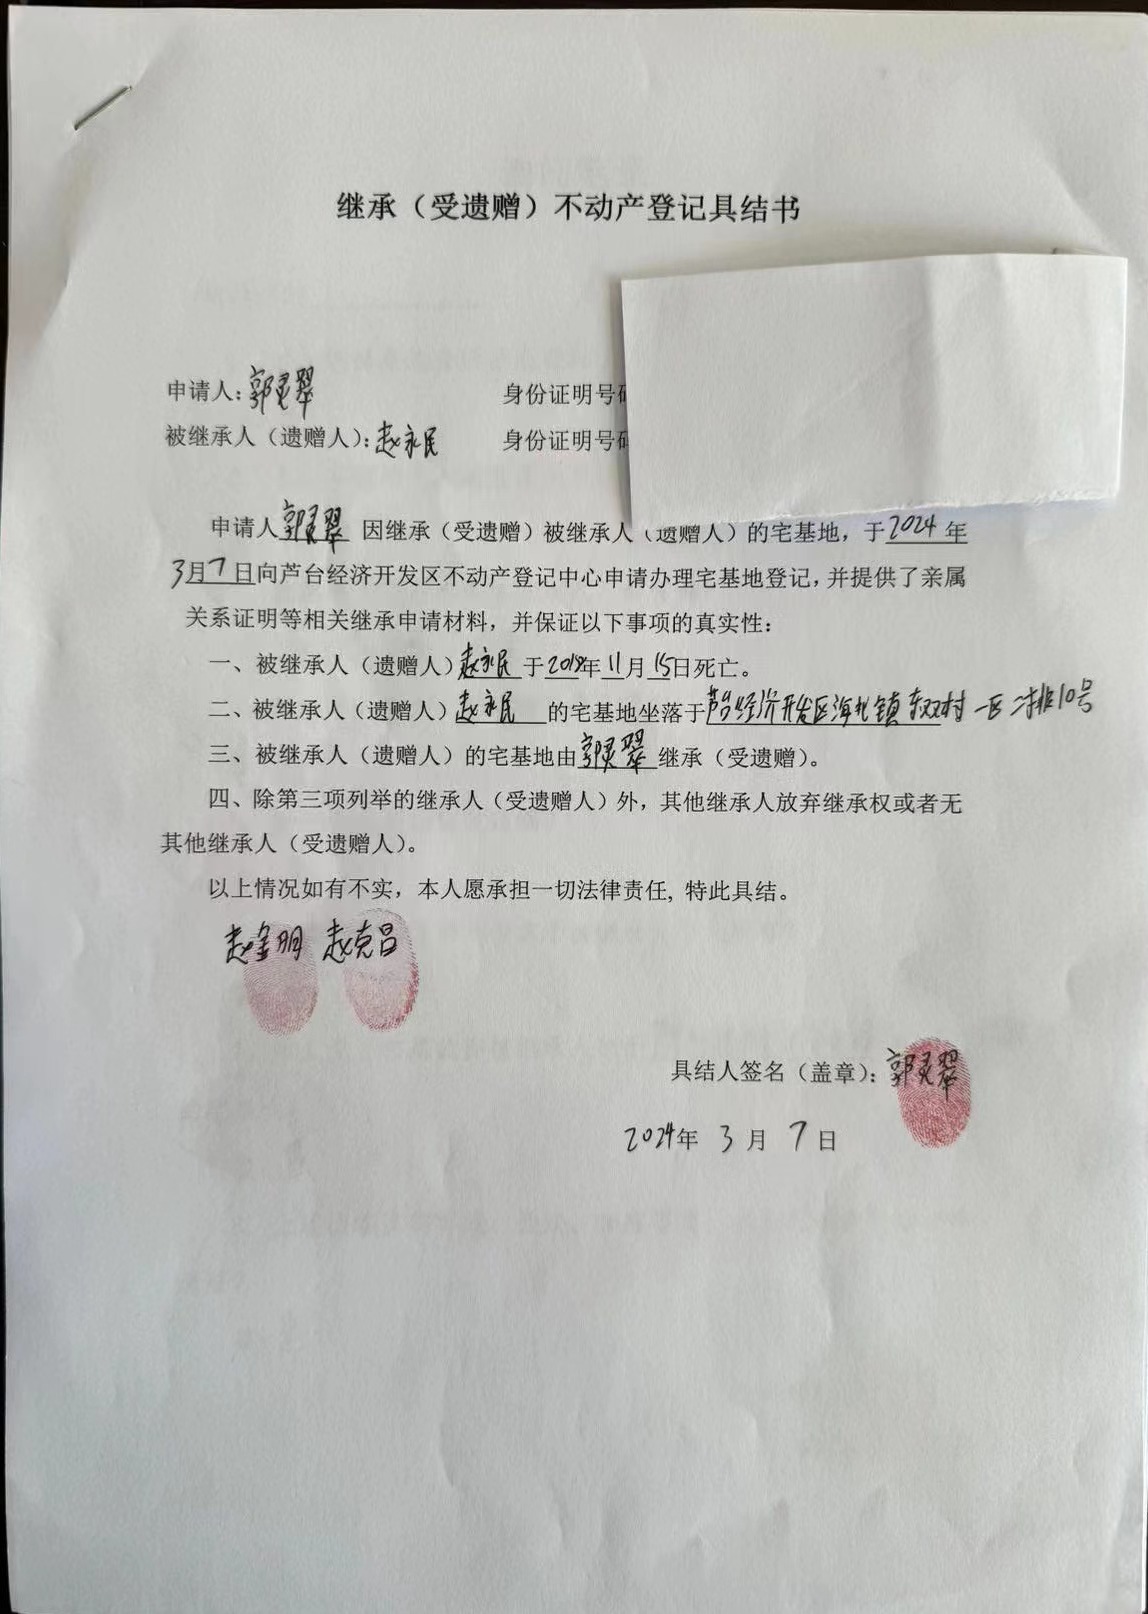 继承（受遗赠）不动产登记具结书
申请人：郭灵翠 身份证明号码
被继承人（遗赠人）：赵永民 身份证明号码
申请人郭灵翠 因继承（受遗赠）被继承人（遗赠人）的宅基地，于2024年
3月7日向芦台经济开发区不动产登记中心申请办理宅基地登记，并提供了亲属
关系证明等相关继承申请材料，并保证以下事项的真实性：
一、被继承人（遗赠人）赵永民于2018年11月15日死亡。
二、被继承人（遗赠人）赵永民 的宅基地坐落于芦台经济开发区海北镇东双村 一区 排10号
三、被继承人（遗赠人）的宅基地由郭灵翠继承（受遗赠）。
四、除第三项列举的继承人（受遗赠人）外，其他继承人放弃继承权或者无
其他继承人（受遗赠人）。
以上情况如有不实，本人愿承担一切法律责任, 特此具结。
赵金明 赵克昌
具结人签名（盖章）：郭灵翠
2024年 3月 7日